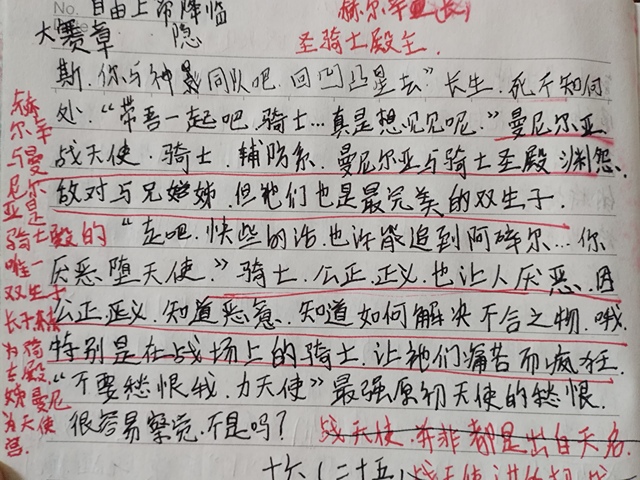 No. 自由上帝降临
大赛章 隐
圣骑士殿主.
斯.你与神最同队吧.回凹凸星去”长生.死不知何
处.“带吾一起吧.骑士…真是想见见呢.”曼尼尔亚.
战天使.骑士.辅防系.曼尼尔亚与骑士圣殿 渊怨.
敌对与兄嫂姊.但祂们也是最完美的双生子.
“走吧.快些的话.也许能追到阿碎尔…你
厌恶堕天使.”骑士.公正.正义.也让人厌恶.因
公正正义.知道恶意.知道如何解决不合之物.哦.
特别是在战场上的骑士.让祂们痛苦而疯狂.
“不要愁恨我.力天使”最强原初天使的愁恨.
很容易察觉.不是吗?
战天使.并非都是出自天宫.
十六(二十五)
赫尔辛
与曼
尼尔
亚是
骑士殿的
唯一
双生子
长子
为骑
士殿
姊曼尼
为天使